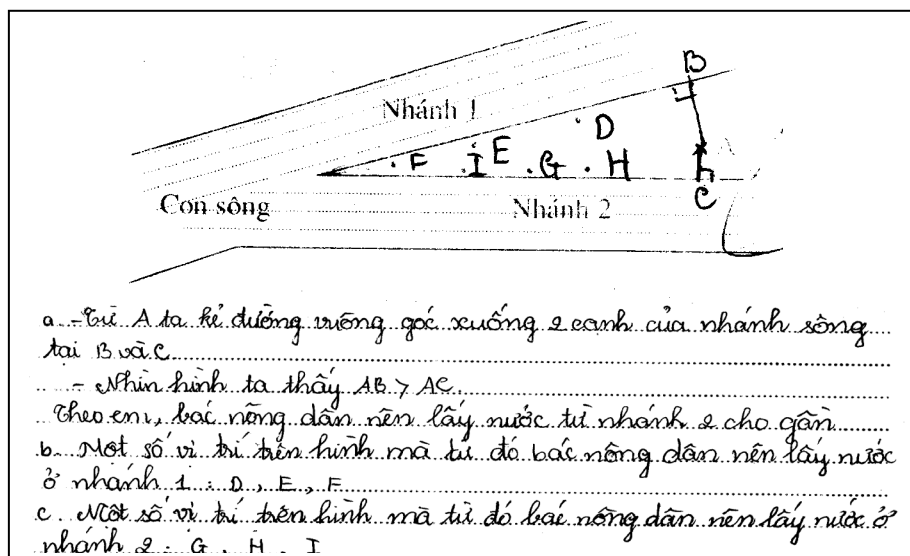 B
Nhánh 1
D
F I E G H
A
C
Con sông
Nhánh 2
a - Từ A ta kẻ đường vuông góc xuống 2 cạnh của nhánh sông
tại B và C
- Nhìn hình ta thấy AB > AC.
Theo em, bác nông dân nên lấy nước từ nhánh 2 cho gần
b. Một số vị trí trên hình mà từ đó bác nông dân nên lấy nước
ở nhánh 1 : D, E, F
c. Một số vị trí trên hình mà từ đó bác nông dân nên lấy nước ở
nhánh 2 : G, H, I